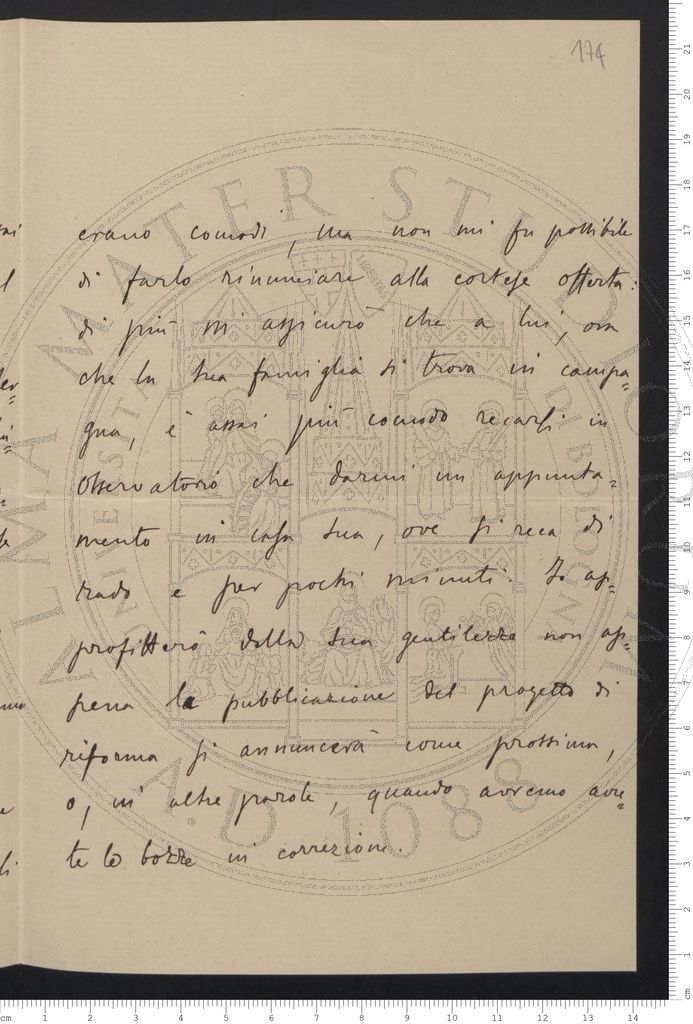 174
erano comodi, ma non mi fu possibile
di farlo rinunciare alla cortese offerta:
di più mi assicurò che a lui, ora
che la sua famiglia si trova in campa=
gna, è assai più comodo recarsi in
Osservatorio che darmi un appunta=
mento in casa sua, ove si reca di
rado e per pochi minuti. Io ap=
profitterò della sua gentilezza non ap=
pena la pubblicazione del progetto di
riforma si annuncerà come prossima,
o, in altre parole, quando avremo avu=
te le bozze in correzione.
ALMA MATER STUDIORUM
A.D. 1088